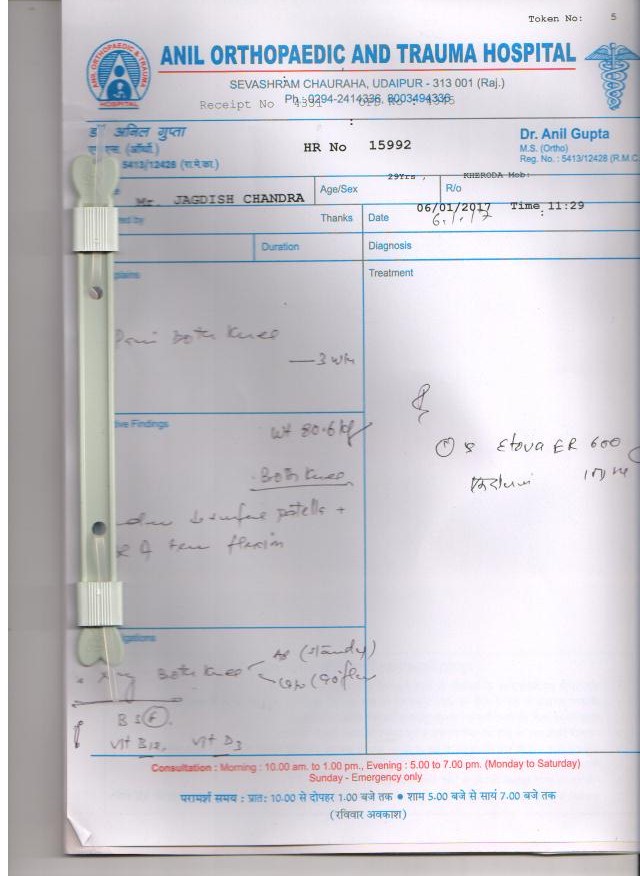 Token No: 5
ANIL ORTHOPAEDIC & TRAUMA
HOSPITAL
ANIL ORTHOPAEDIC AND TRAUMA HOSPITAL
SEVASHRAM CHAURAHA, UDAIPUR - 313 001 (Raj.)
Ph.: 0294-2414336, 8003494336
Receipt No 4391
डॉ अनिल गुप्ता
(ऑर्थो)
5413/12428 (रा.मे.का.)
HR No 15992
Dr. Anil Gupta
M.S. (Ortho)
Reg. No. : 5413/12428 (R.M.C
Mr. JAGDISH CHANDRA
Age/Sex
29Yrs ,
R/o
KHERODA Mob:
ed by
Thanks
Date
06/01/2017 Time 11:29
6.1.17
Duration
Diagnosis
plains
Treatment
Pain Both Knee
— 3 wk
ive Findings
Wt 80.6 kg
Both Knee
patella +
flexion
① Etova ER 600
igations
x ray Both Knee
AP (standy)
B 12, Vit D3
Consultation : Morning : 10.00 am. to 1.00 pm., Evening : 5.00 to 7.00 pm. (Monday to Saturday)
Sunday - Emergency only
परामर्श समय : प्रात: 10.00 से दोपहर 1.00 बजे तक ● शाम 5.00 बजे से सायं 7.00 बजे तक
(रविवार अवकाश)